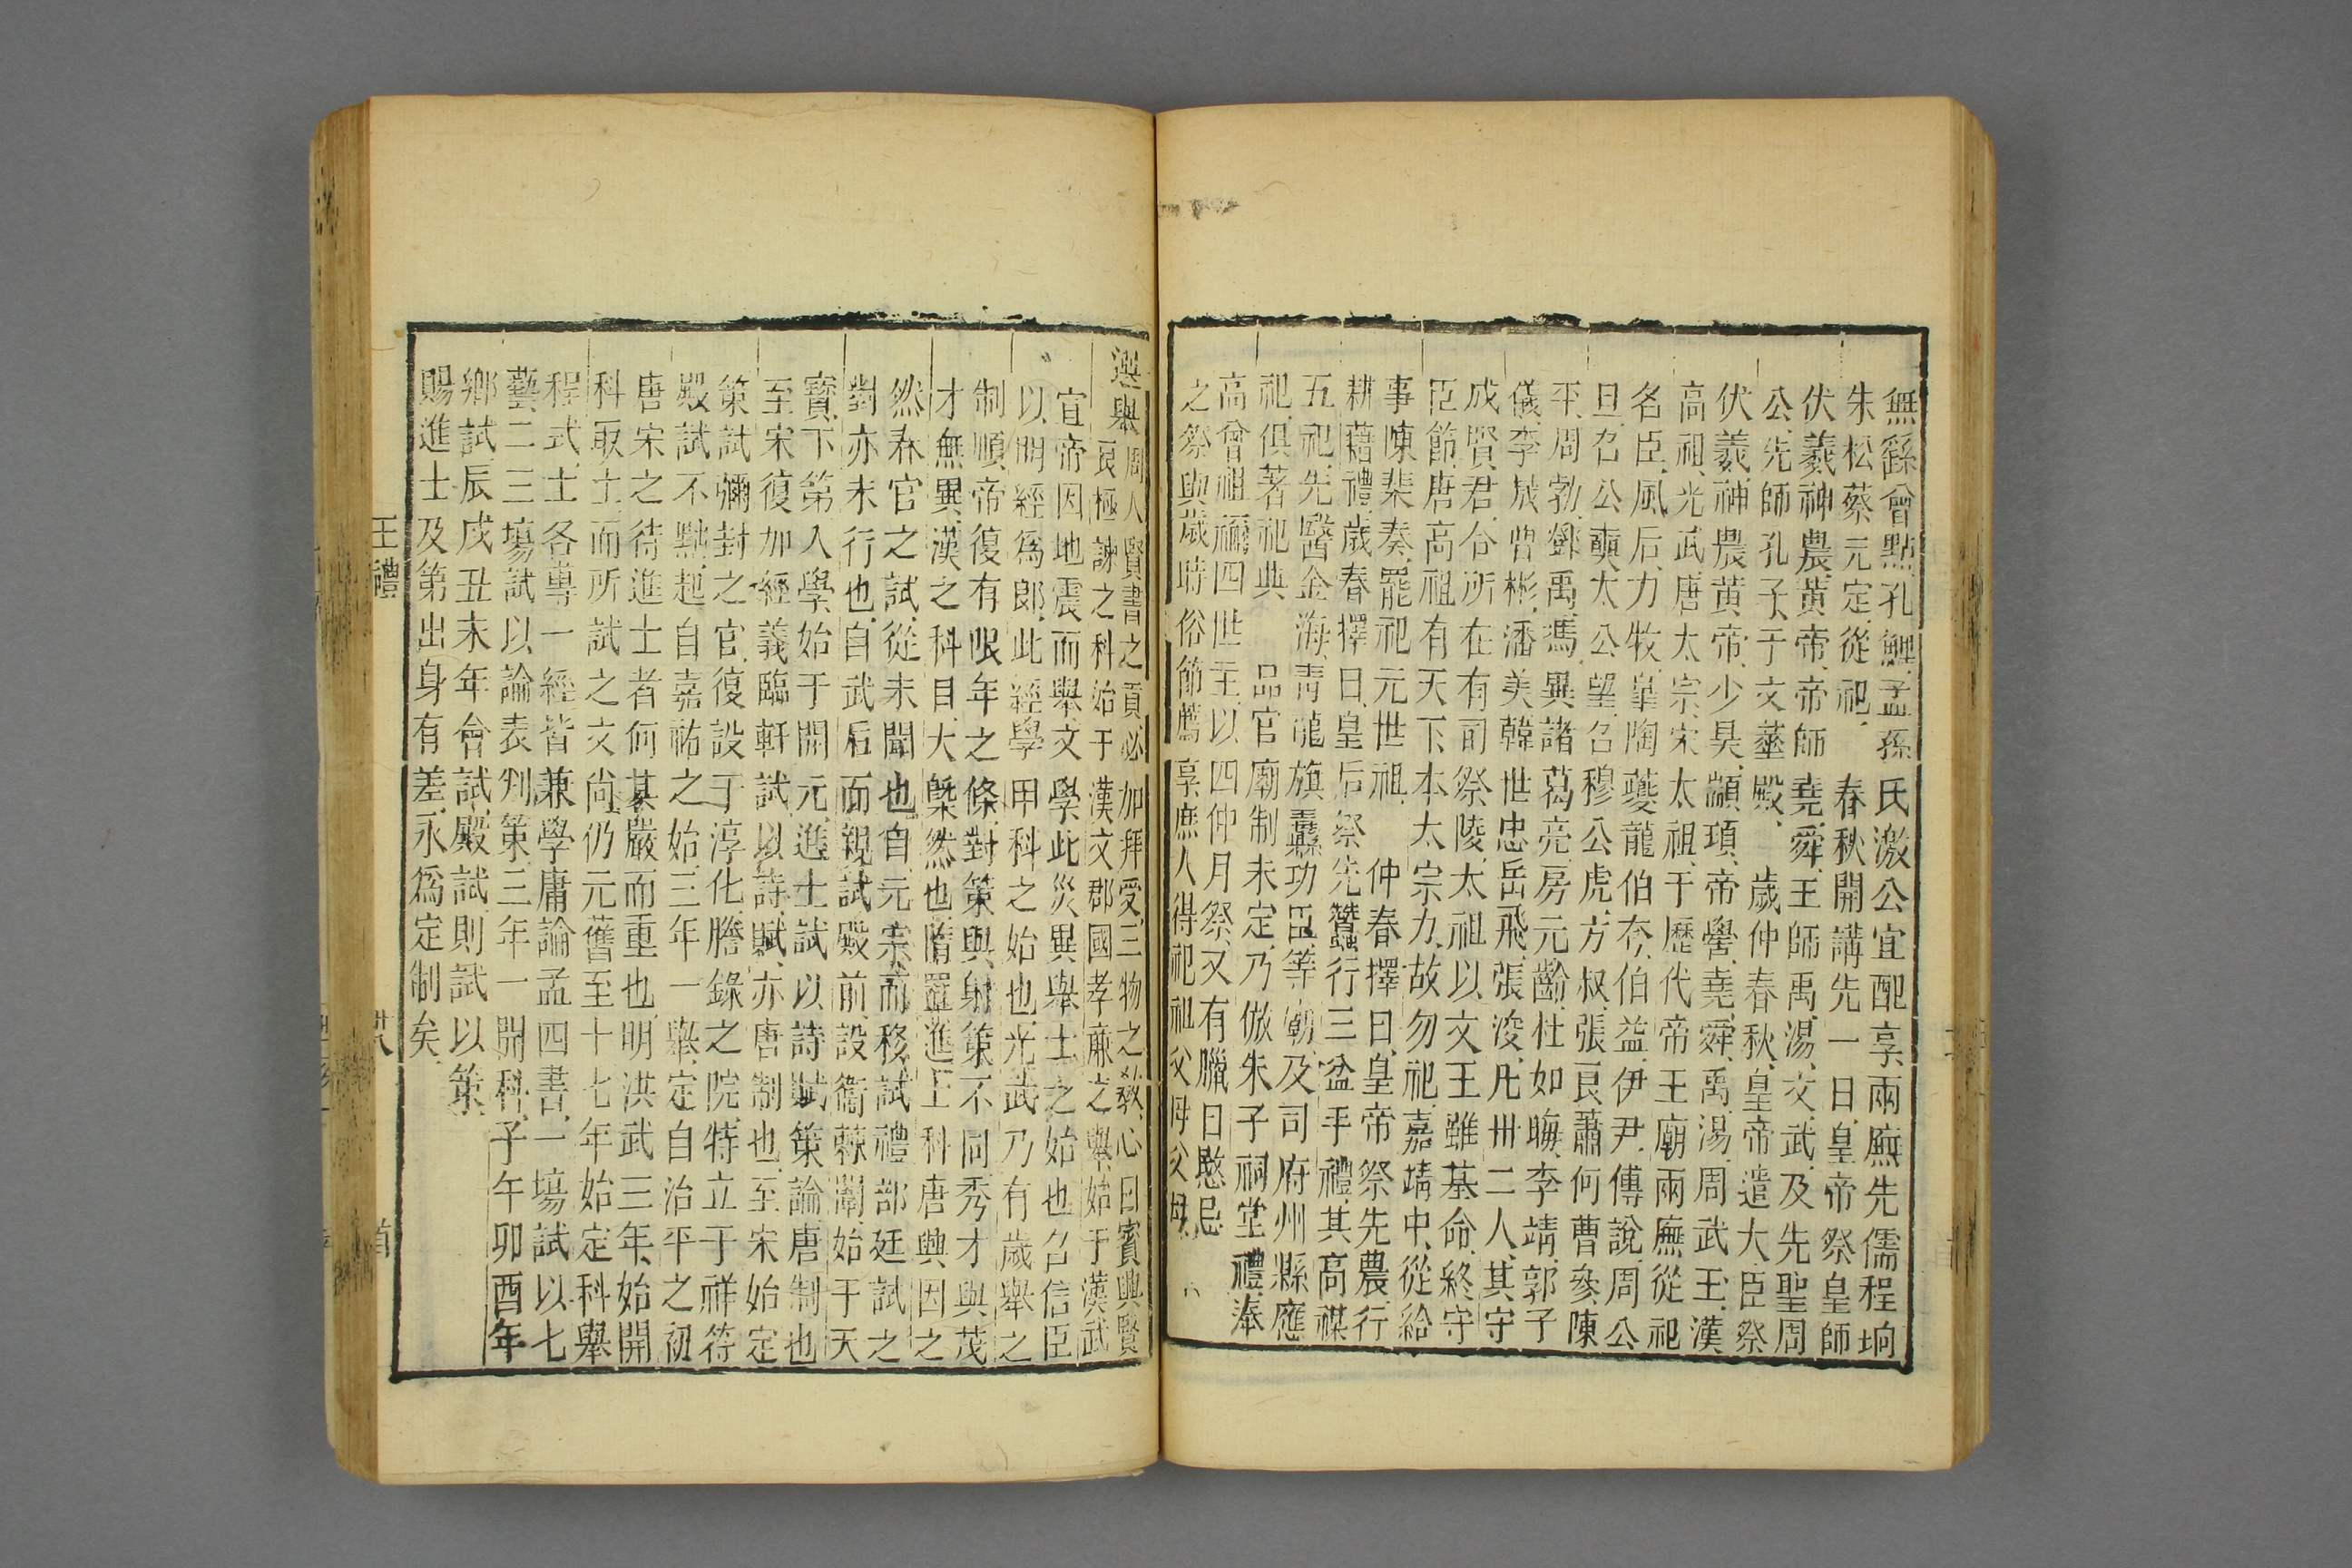 無繇曾點孔鯉孟孫氏激公宜配享兩廡先儒程垧
朱松蔡元定從祀、春秋開講先一日皇帝祭皇師
伏羲神農黃帝、帝師堯舜、王師禹湯文武及先聖周
公、先師孔子、于文華殿、歲仲春秋、皇帝遣大臣祭
伏羲神農黃帝、少昊、顓頊、帝嚳、堯舜、禹湯、周武王、漢
高祖、光武、唐太宗、宋太祖、于歷代帝王廟兩廡從祀
名臣、風后、力牧、皐陶夔龍伯夷、伯益、伊尹、傅說、周公
旦召公奭太公望、召穆公虎、方叔、張良蕭何曹參、陳
平、周勃、鄧禹、馮異諸葛亮、房元齡、杜如晦、李靖、郭子
儀、李晟曹彬、潘美韓世忠岳飛、張浚、凡卅二人、其守
成賢君、令所在有司祭陵、太祖以文王雖基命、終守
臣節、唐高祖有天下、本太宗力、故勿祀、嘉靖中、從給
事陳棐奏、罷祀元世祖、仲春擇日、皇帝祭先農、行
耕藉禮、歲春擇日、皇后祭先蠶、行三盆手禮、其高禖
五祀、先醫金海、靑龍旗纛功臣等廟、及司府州縣應
祀、俱著祀典　品官廟制未定、乃倣朱子祠堂禮、奉
高曾祖禰四世主、以四仲月祭、又有臘日愍忌
之祭、與歲時俗節薦享庶人得祀祖父母父母、
選舉周人賢書之貢、必加拜受、三物之敎、必曰賓興賢
良極諫之科始于漢文郡國孝廉之舉、始于漢武
宣帝因地震而舉文學此災異舉士之始也召信臣
以明經爲郎、此經學甲科之始也、光武乃有歲舉之
制、順帝復有限年之條、對策與射策不同、秀才與茂
才無異、漢之科目、大槩然也、隋置進士科唐興因之
然春官之試、從未聞也、自元宗而移試禮部廷試之
對亦未行也、自武后而親試殿前、設衞棘闈、始于天
寶、下第入學始于開元、進士試以詩賦策論、唐制也
至宋復加經義臨軒試以詩賦、亦唐制也、至宋始定
策試、彌封之官、復設于淳化、謄錄之院、特立于祥符
殿試不黜、起自嘉祐之始、三年一舉、定自治平之初
唐宋之待進士者何其嚴而重也、明洪武三年、始開
科取士、而所試之文尚仍元舊至十七年始定科舉
程式、士各專一經、皆兼學庸論孟四書、一塲試以七
藝二三塲試以論表判策、三年一開科、子午卯酉年
鄉試、辰戌丑未年會試、殿試則試以策、
賜進士及第出身有差、永爲定制矣、
王禮
廿八
首